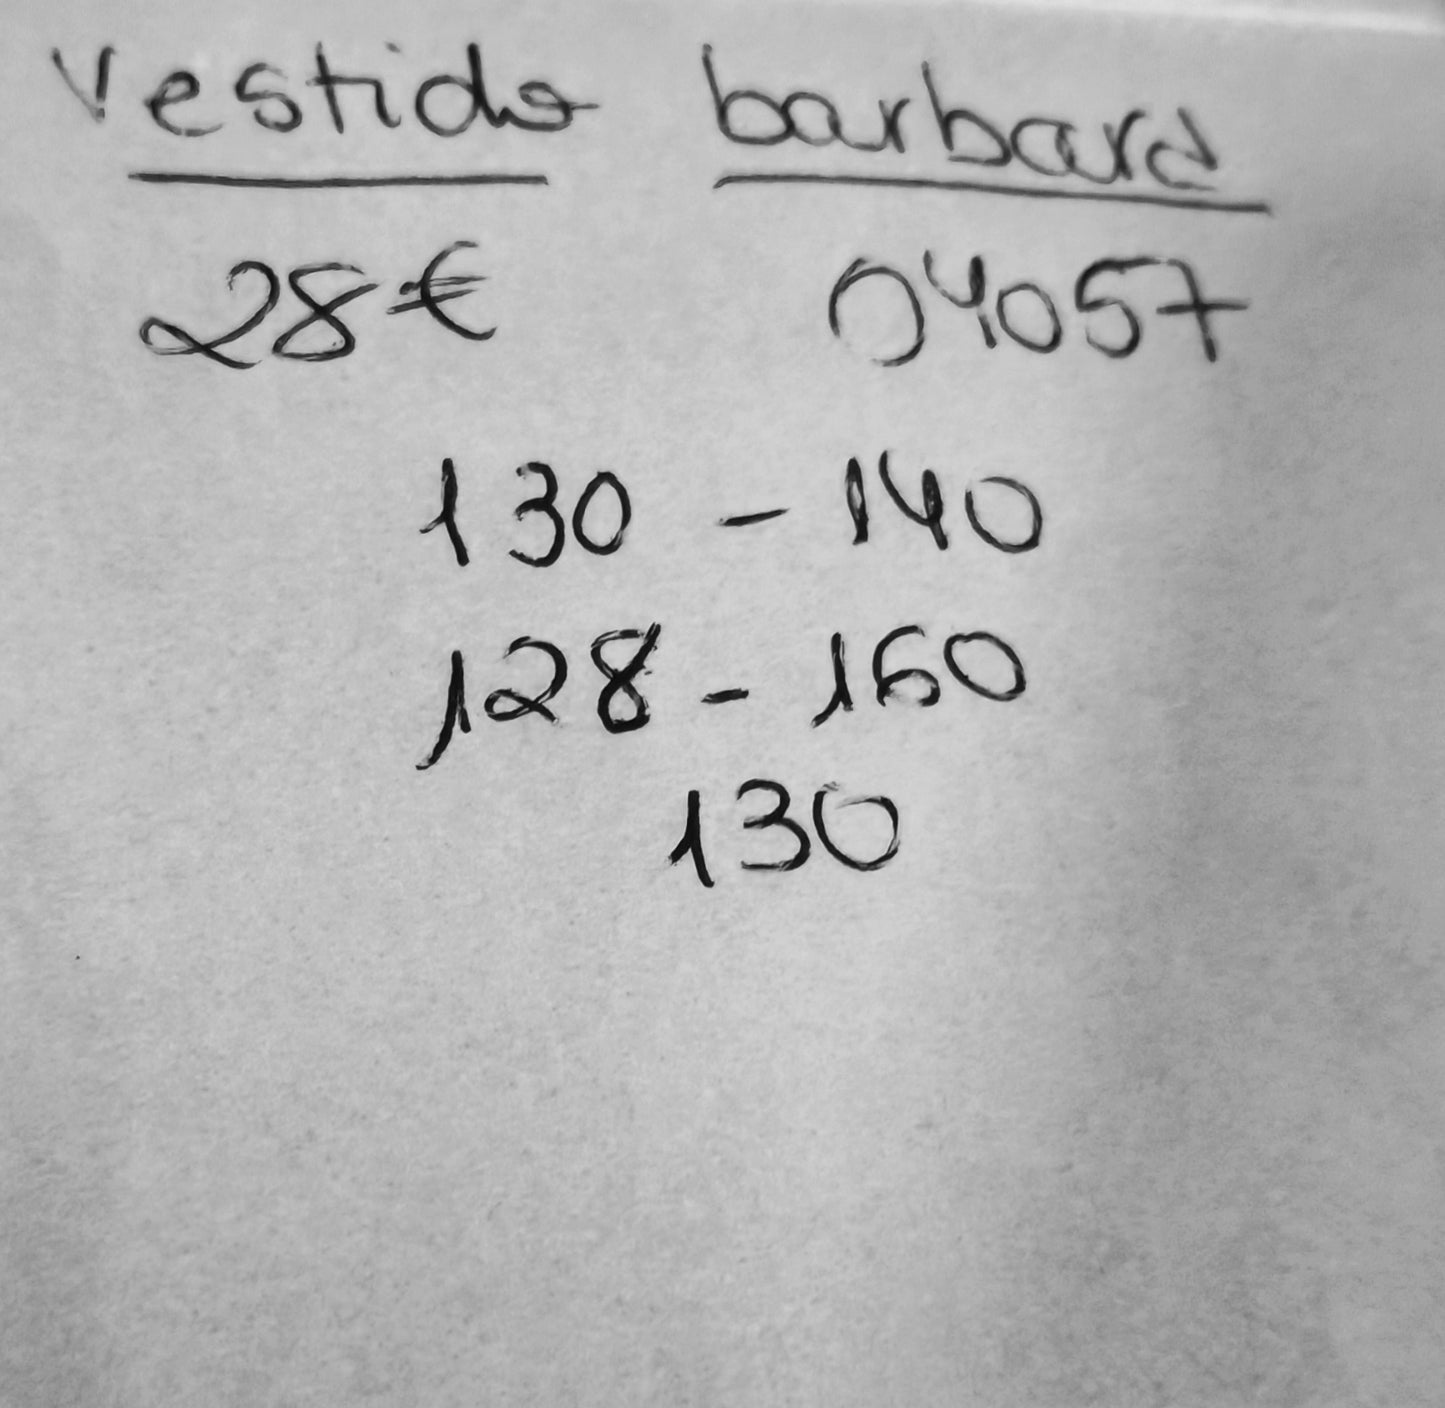 vestido barbara
28€ 04057
130 - 140
128 - 160
130